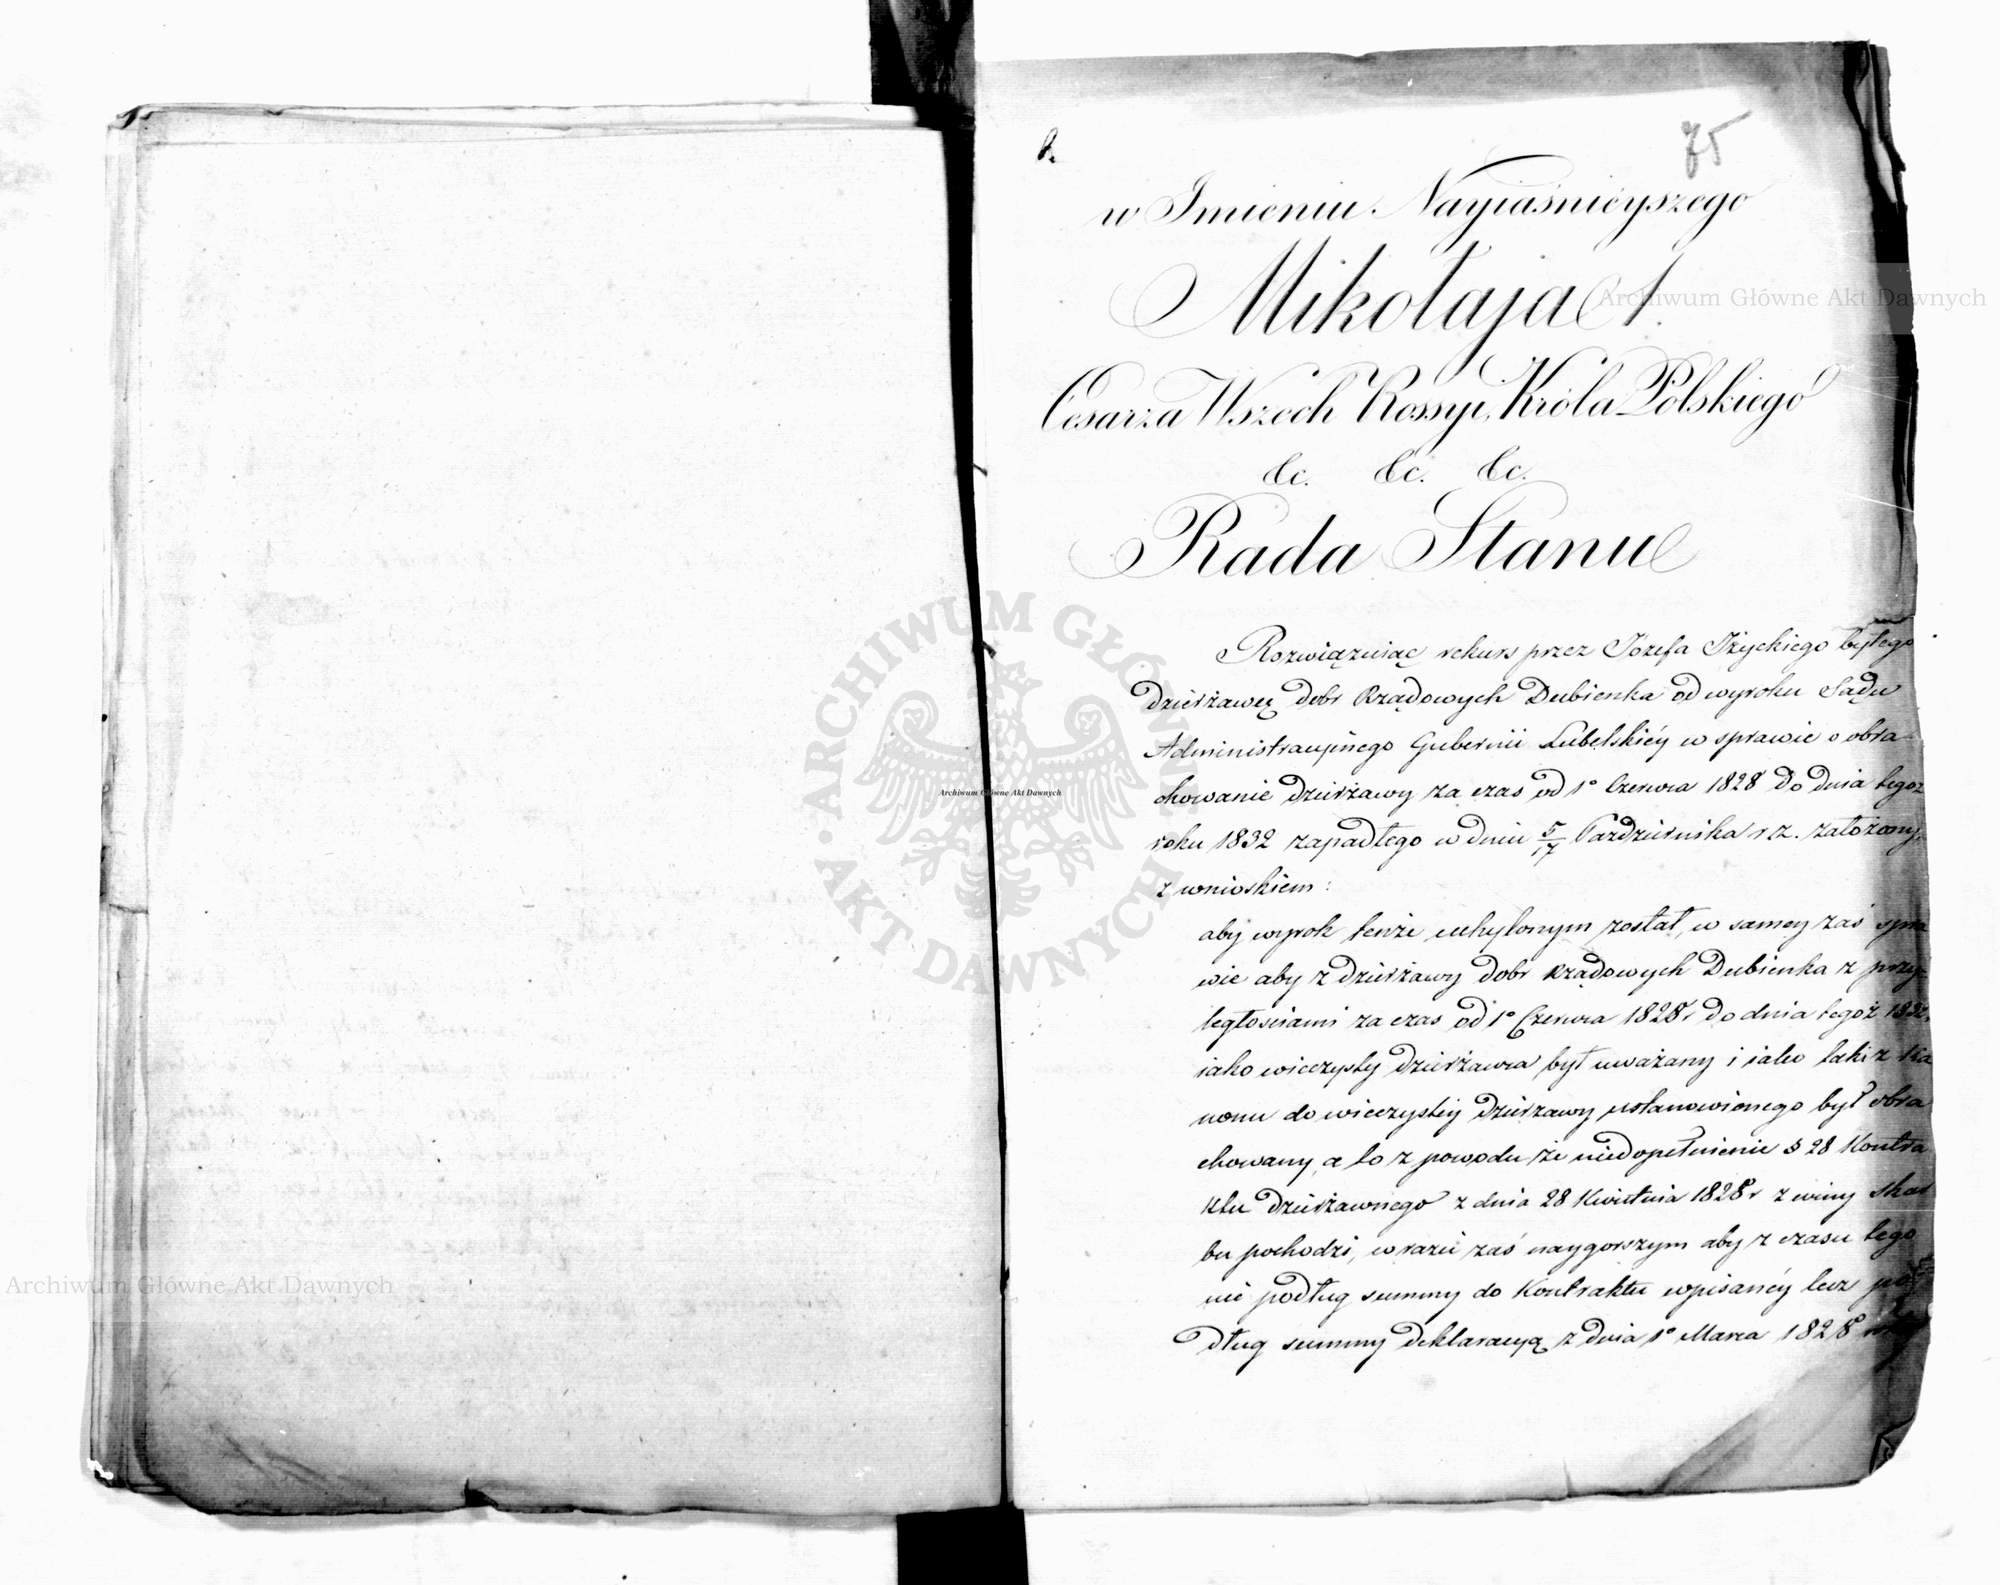 75
w Imieniu Nayiaśnieyszego
Mikołaja I.
Cesarza Wszech Rossyi, Króla Polskiego
&c. &c. &c.
Rada Stanu
Rozwiązuiąc rekurs przez Józefa Iżyckiego byłego
dzierżawcę dobr Rządowych Dubienka od wyroku Sądu
Administracyinego Gubernii Lubelskiéy w sprawie o obra
chowanie dzierżawy za czas od 1° Czerwca 1828 do dnia tegoż
roku 1832 zapadłego w dniu 5/17 Pazdziernika rz. założony,
z wnioskiem:
aby wyrok tenże uchylonym został, w samey zaś spra
wie aby z dzierżawy dobr rządowych Dubienka z przy-
ległosciami za czas od 1° Czerwca 1828r do dnia tegoż 1832,
iako wieczysty dzierżawca był uważany i iako taki z Ka
nonu do wieczystéy dzierzawy ustanowionego był obra
chowany, a to z powodu że niedopełnienie § 28 Kontra
ktu dzierżawnego z dnia 28 Kwietnia 1828r z winy Skar
bu pochodzi, w razie zaś naygorszym aby z czasu tego
nie podług summy do Kontraktu wpisanéy lecz po
dług summy deklaracyą z dnia 1° Marca 1828
Archiwum Główne Akt Dawnych
Archiwum Główne Akt Dawnych
Archiwum Główne Akt Dawnych
ARCHIWUM GŁÓWNE AKT DAWNYCH